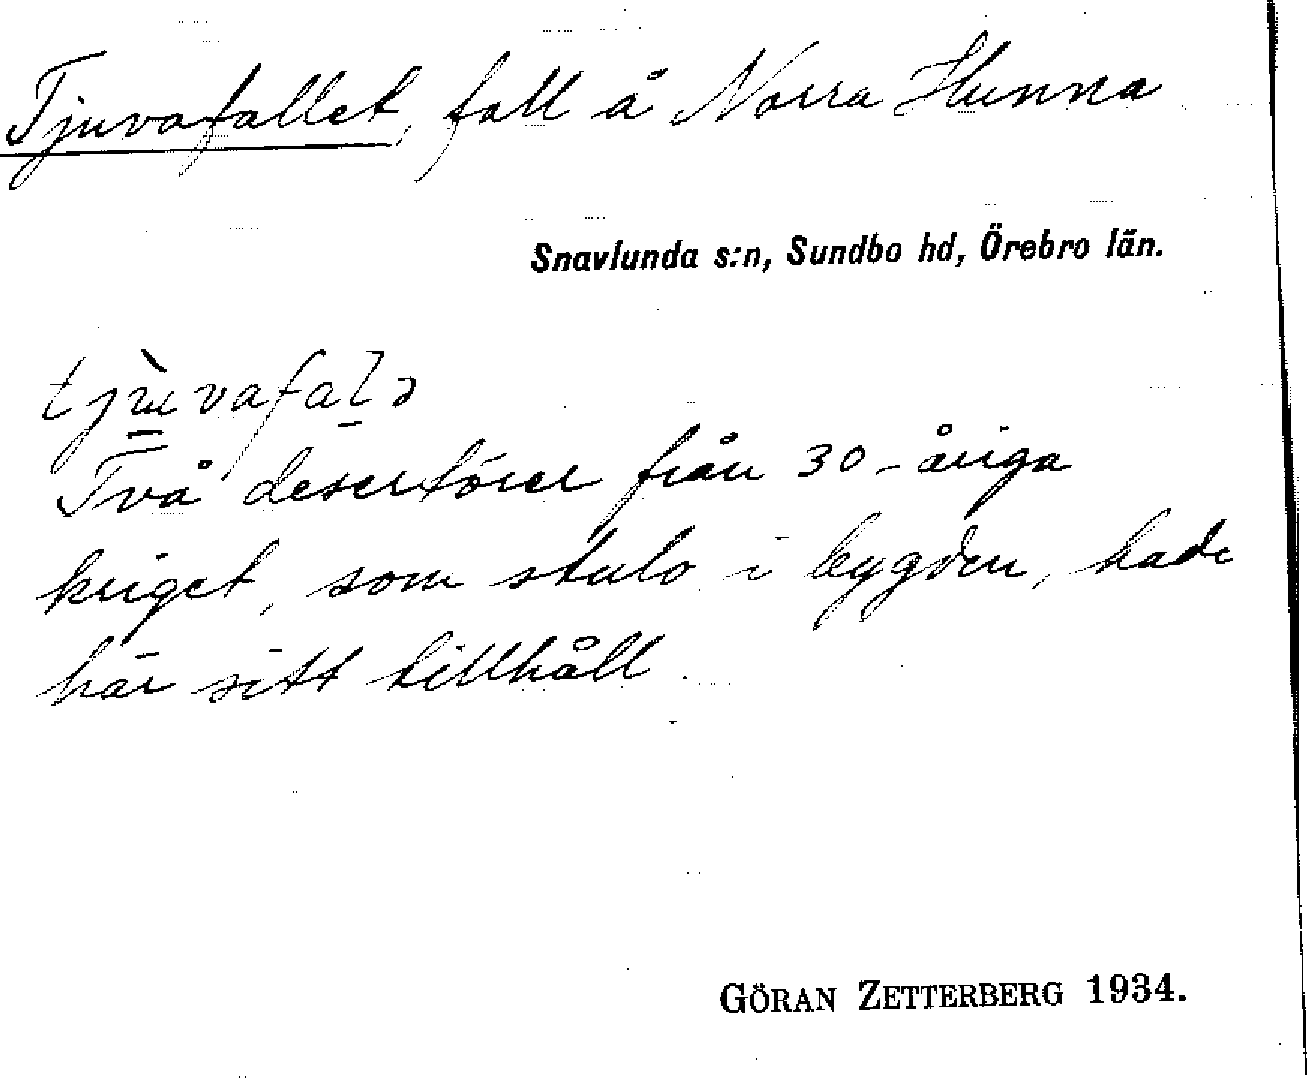 Tjuvafallet, fall å Norra Hunna
Snavlunda s:n, Sundbo hd, Örebro län.
tjùvafalə
Två desertörer från 30-åriga
kriget, som stulo i bygden, hade
här sitt tillhåll.
GÖRAN ZETTERBERG 1934.